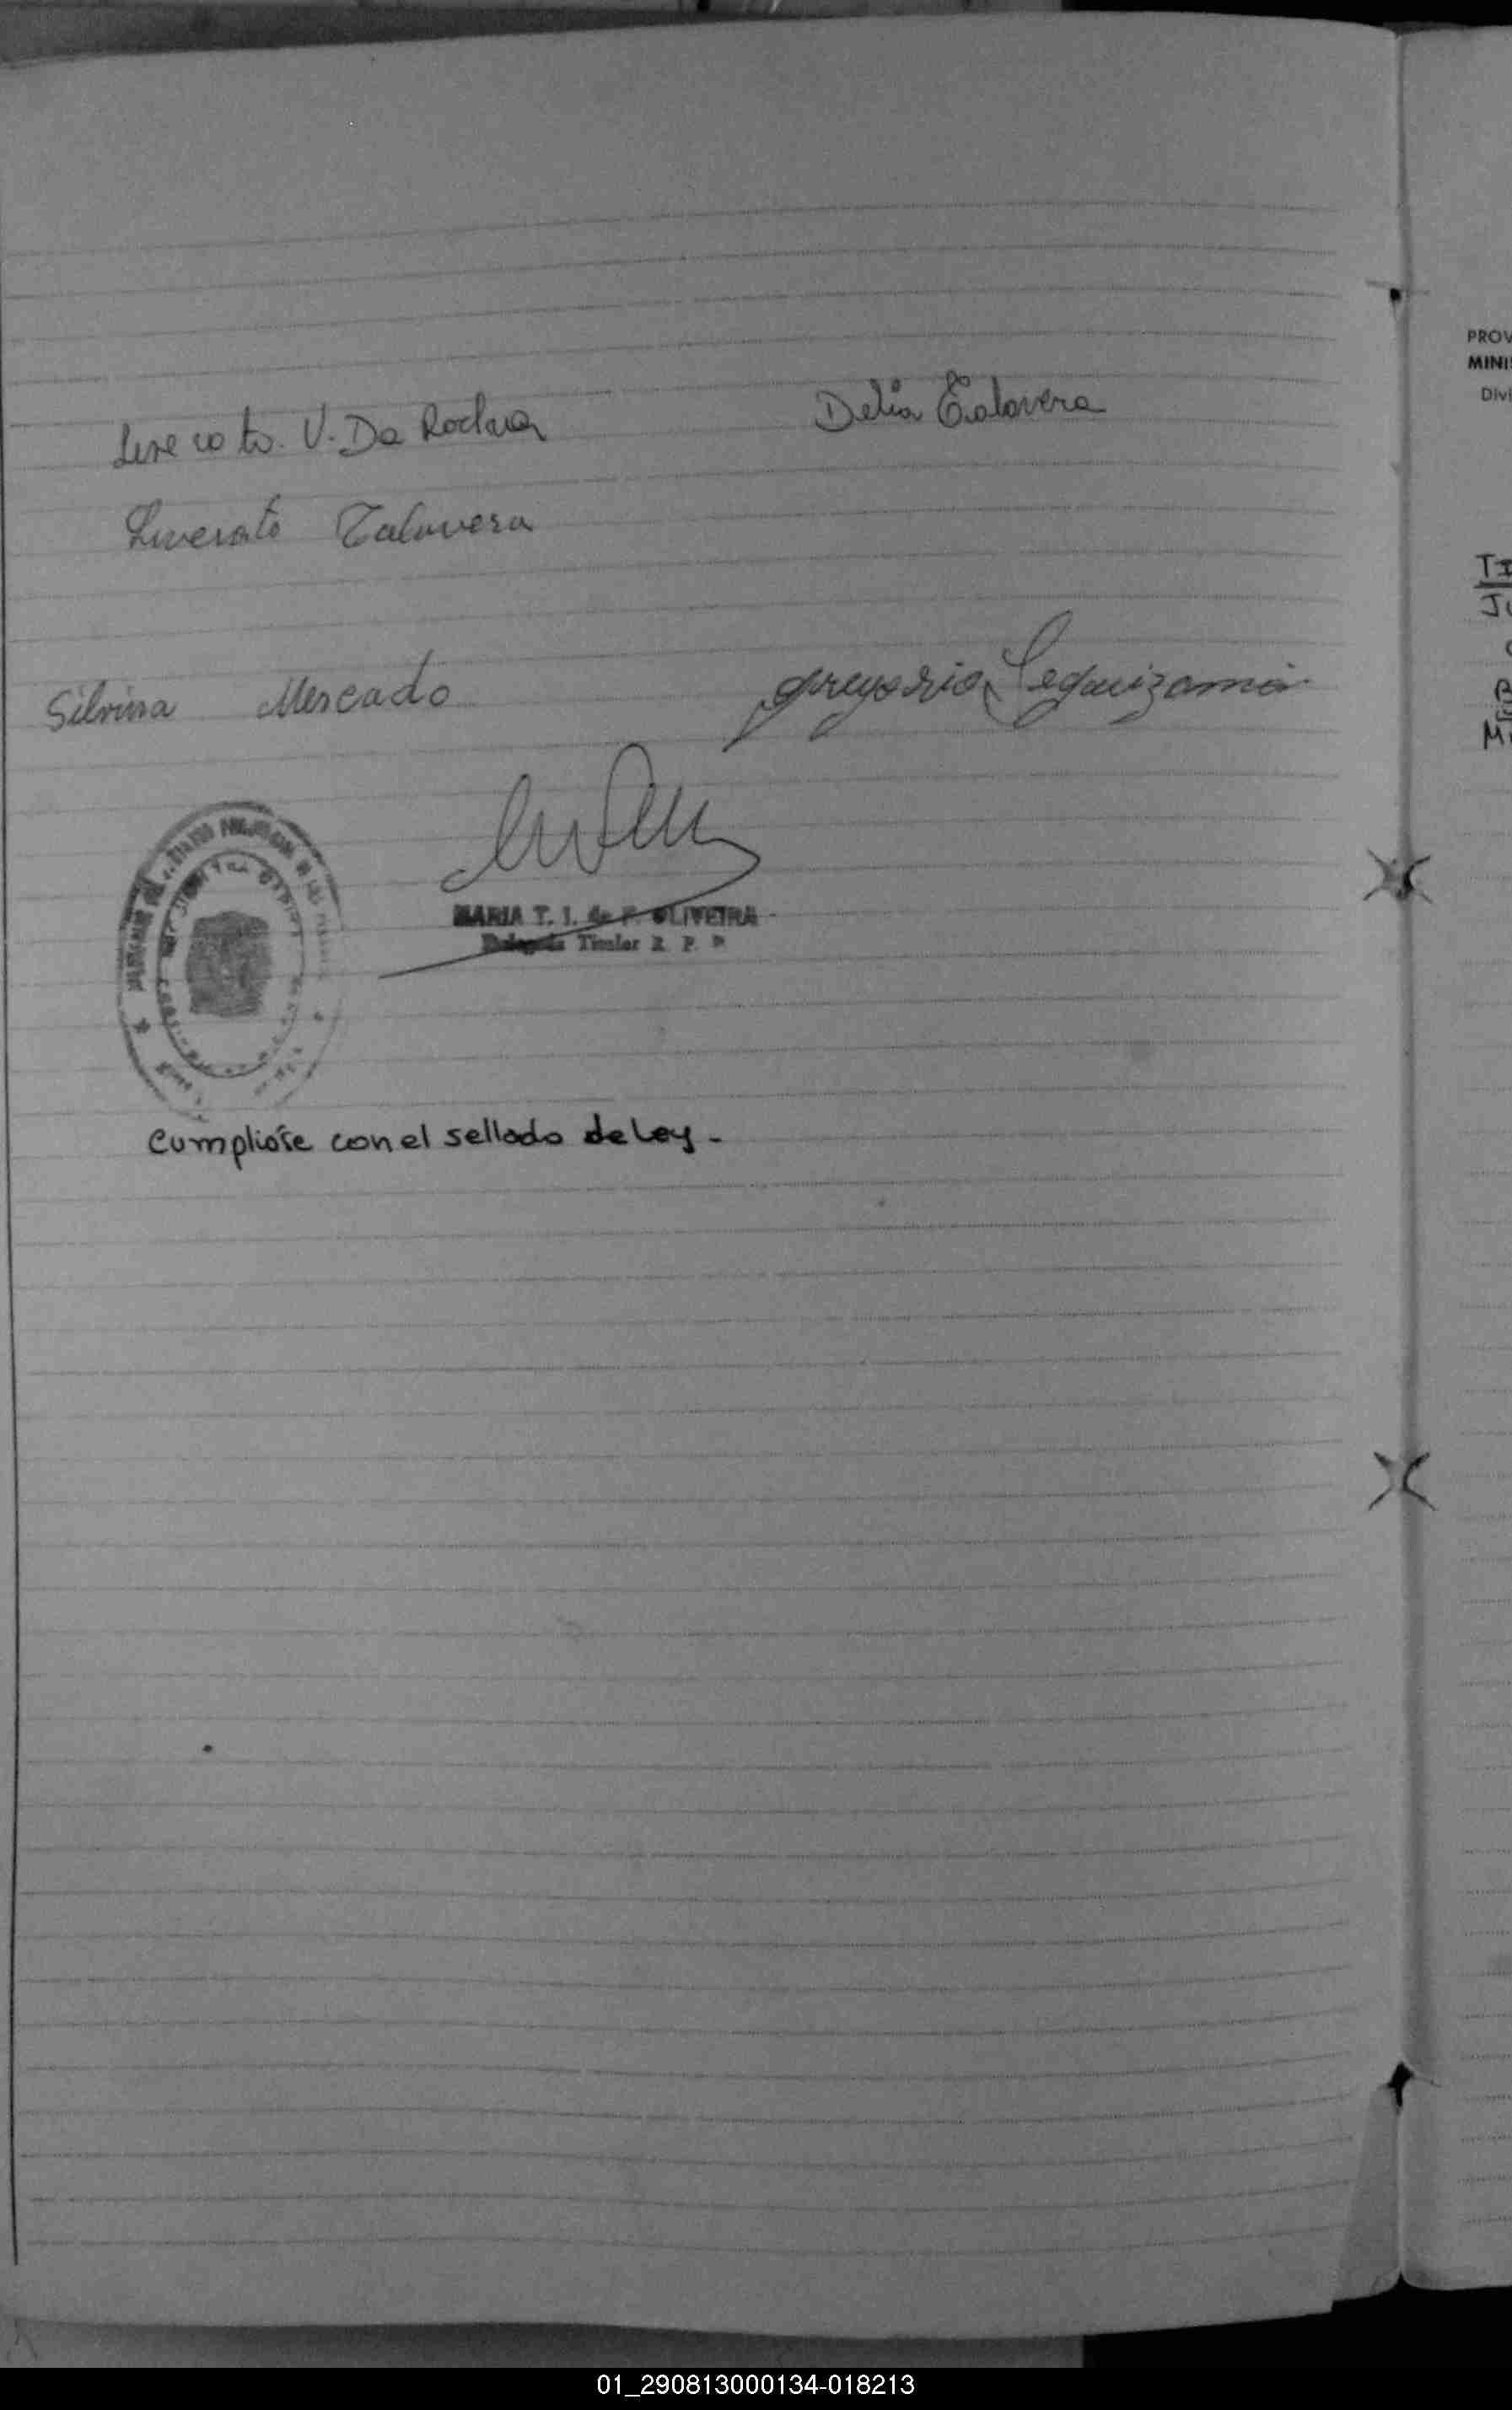 V. Da Rocha
Delia Talavera
Liverato Talavera
Silvina Mercado
Gregorio Leguizamón
MARIA T. I. de F. OLIVEIRA
Delegada Titular R. P. P
Cumplióse con el sellado de Ley -
PROV
MINIS
Divi
TI
Ju
01_290813000134-018213